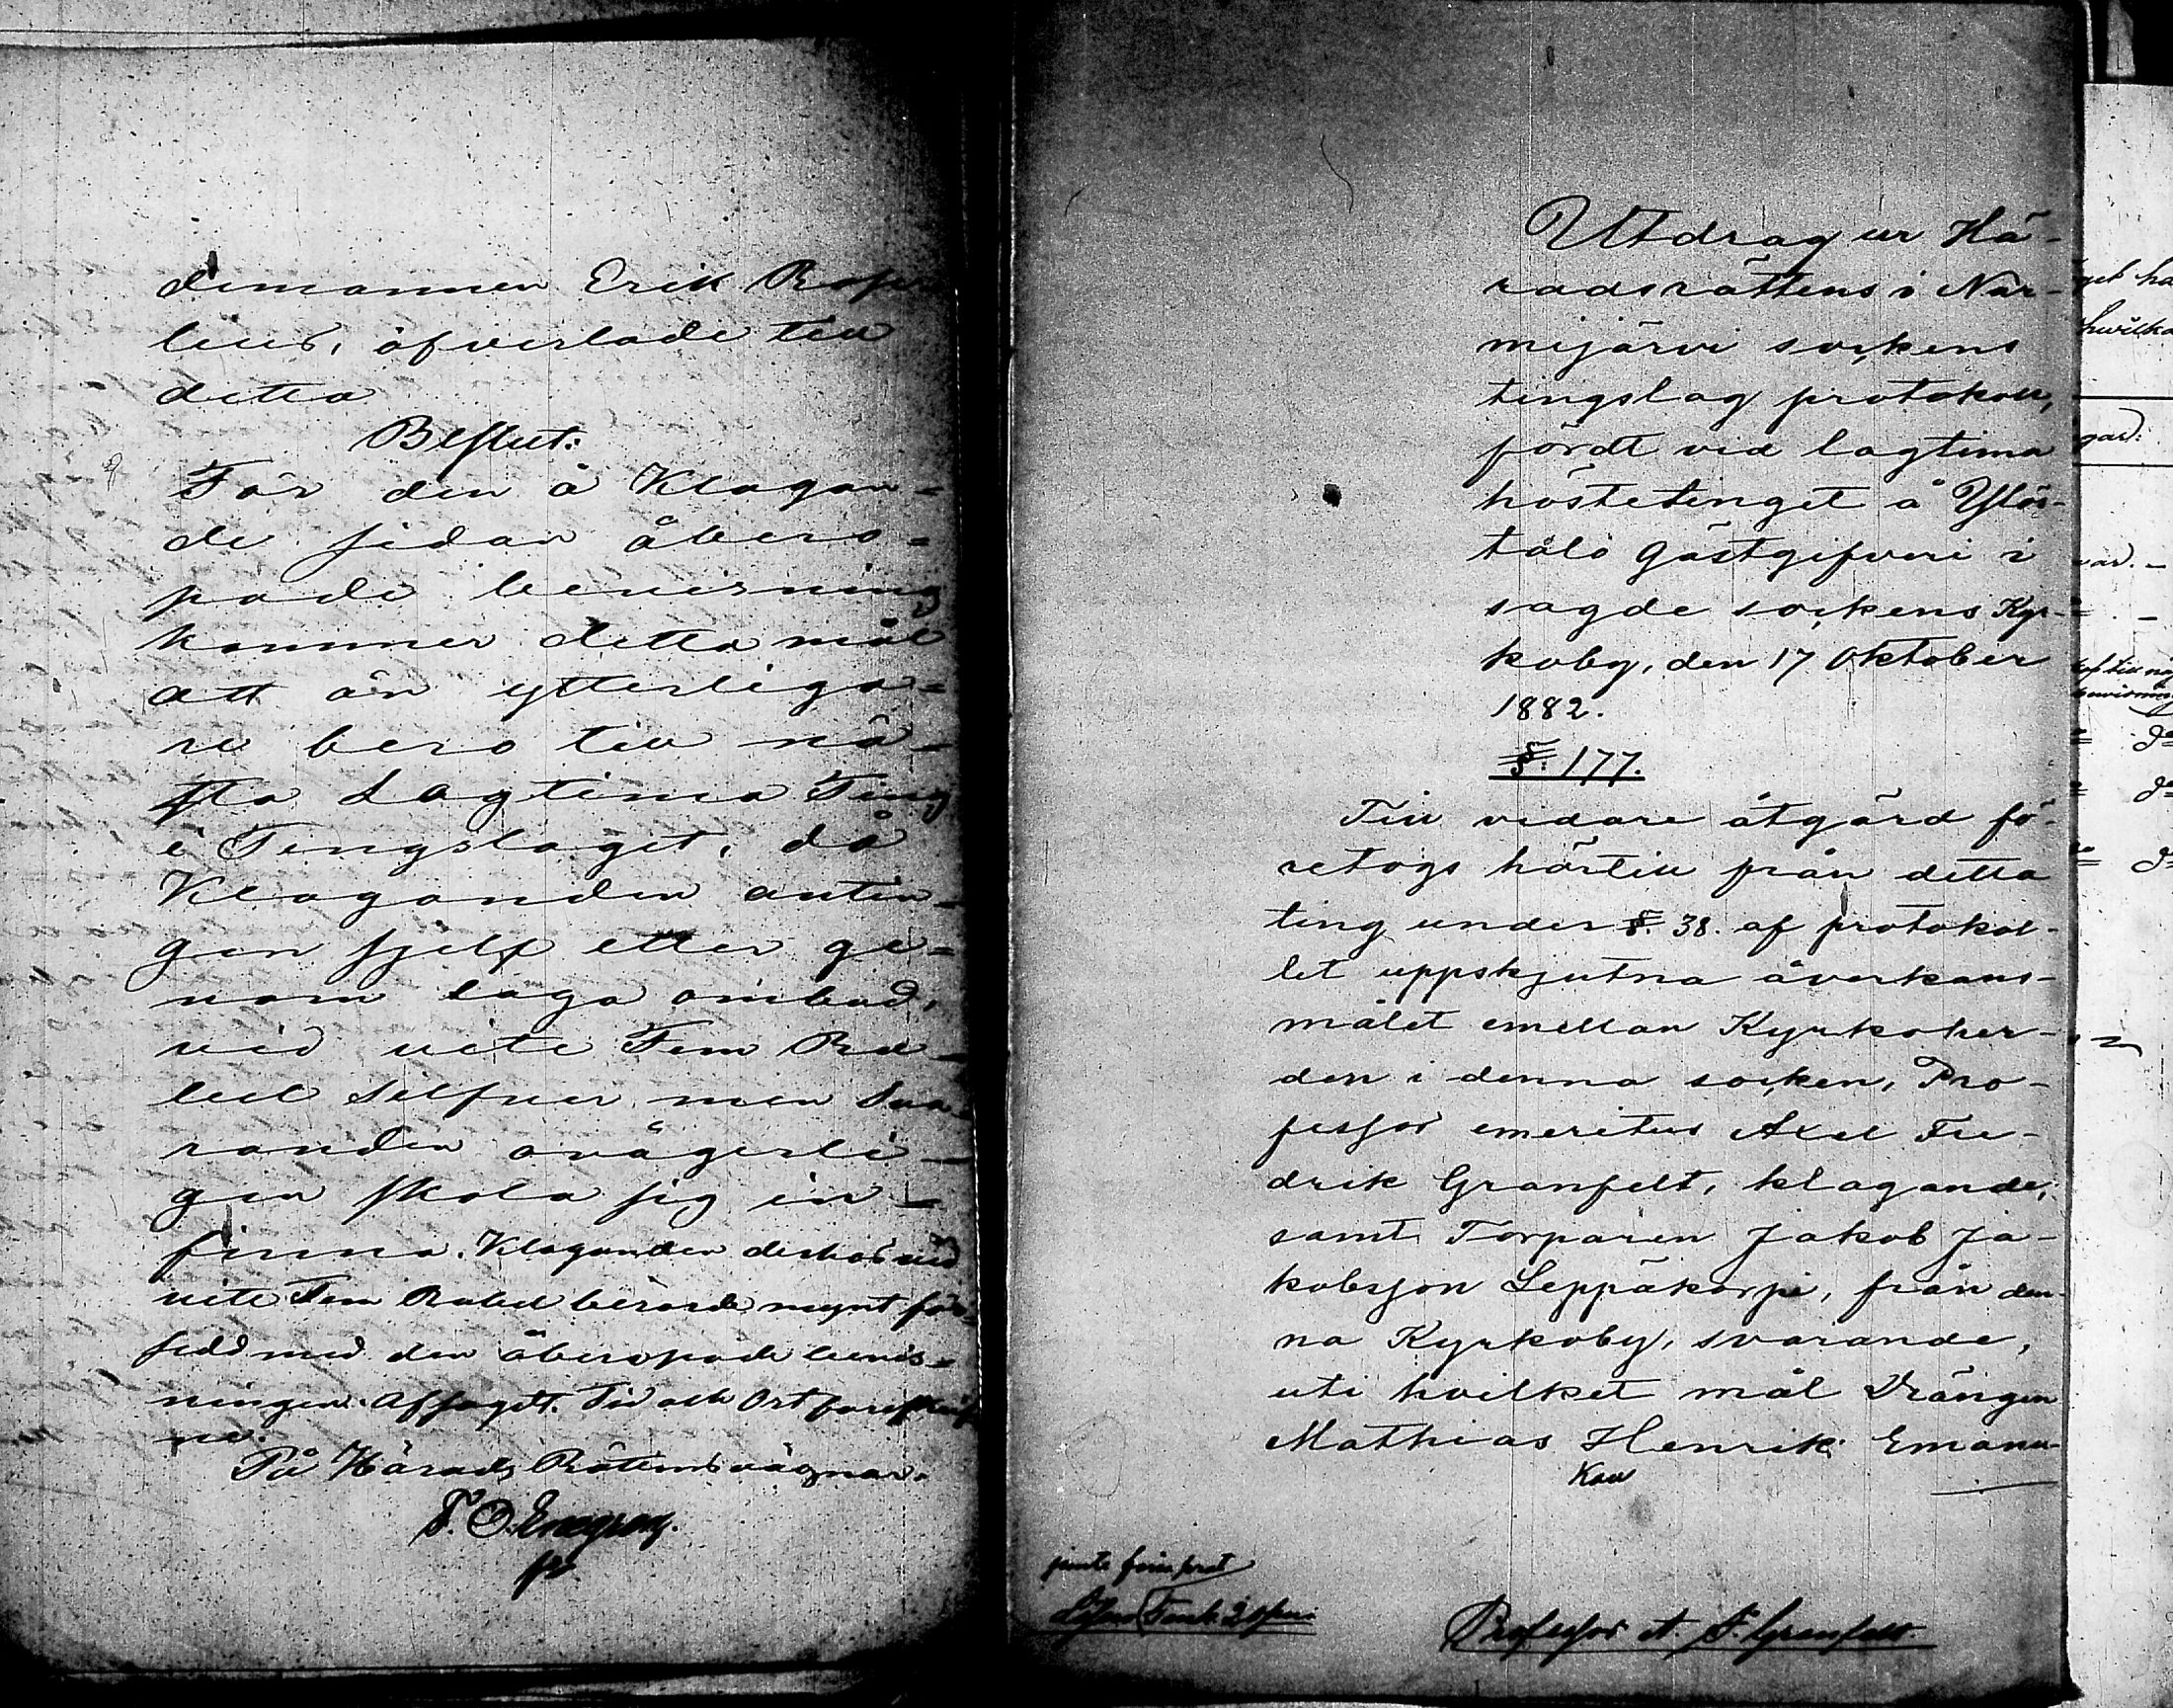 dimannen Erik
leus, öfverlade till
detta
Beslut:
För den å Klagan=
de sidan åbero=
pade bevisning
kommer detta mål
att än ytterliga=
re bero till nä=
sta Lagtima Ting
i Tingslaget, då
Klaganden antin=
gen sjelf eller ge=
nom laga ombud,
vid vite Fem Ru=
bel Silfver men Sva=
randen ovägerli=
gen skola sig in=
finna. Klaganden derhos vid
vite Fem Rubel berörde mynt för=
sedd med den åberopade bevis=
ningen. Afsagdt. Tid och Ort föreskrif
ne.
På Härads Rättens vägnar.
Utdrag ur Hä-
radsrättens i Nur-
mijärvi sockens
tingslag protokoll,
fördt vid lagtima
höstetinget å Ylös-
tålö gästgifveri i
sagde sockens Kyr-
koby, den 17 Oktober
1882.
§. 177.
Till vidare åtgärd fö-
retogs härtill från detta
ting under §. 38. af protokol-
let uppskjutna åverkans-
målet emellan Kyrkoher-
den i denna socken, Pro-
fessor emeritus Axel Fre-
drik Granfelt, klagande,
samt Torparen Jakob Ja-
kobsson Leppäkorpi, från den-
na Kyrkoby, svarande,
uti hvilket mål Drängen
Mathias Henrik Emanu-
Professor A. F. Granfelt.
get ha
hvilka
gar: